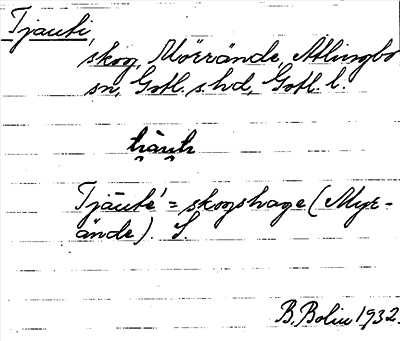 Tjauti,
skog, Mörrände, Atlingbo
sn, Gotl. s. hd, Gotl. l.
Tjäuté' = skogshage (Myr-
ände). S.
B. Bolin 1932.